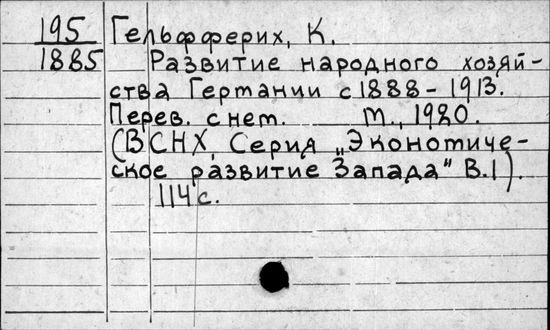 195
1885
Гельфферих, К.
Развитие народного хозяй-
ства Германии с 1888 - 1913.
Перев. с нем. М., 1920.
(ВСНХ, Серия „Экономиче-
ское развитие Запада" В.1).
114 с.